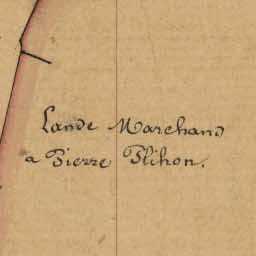 Lande Marchand
a Pierre Plihon.